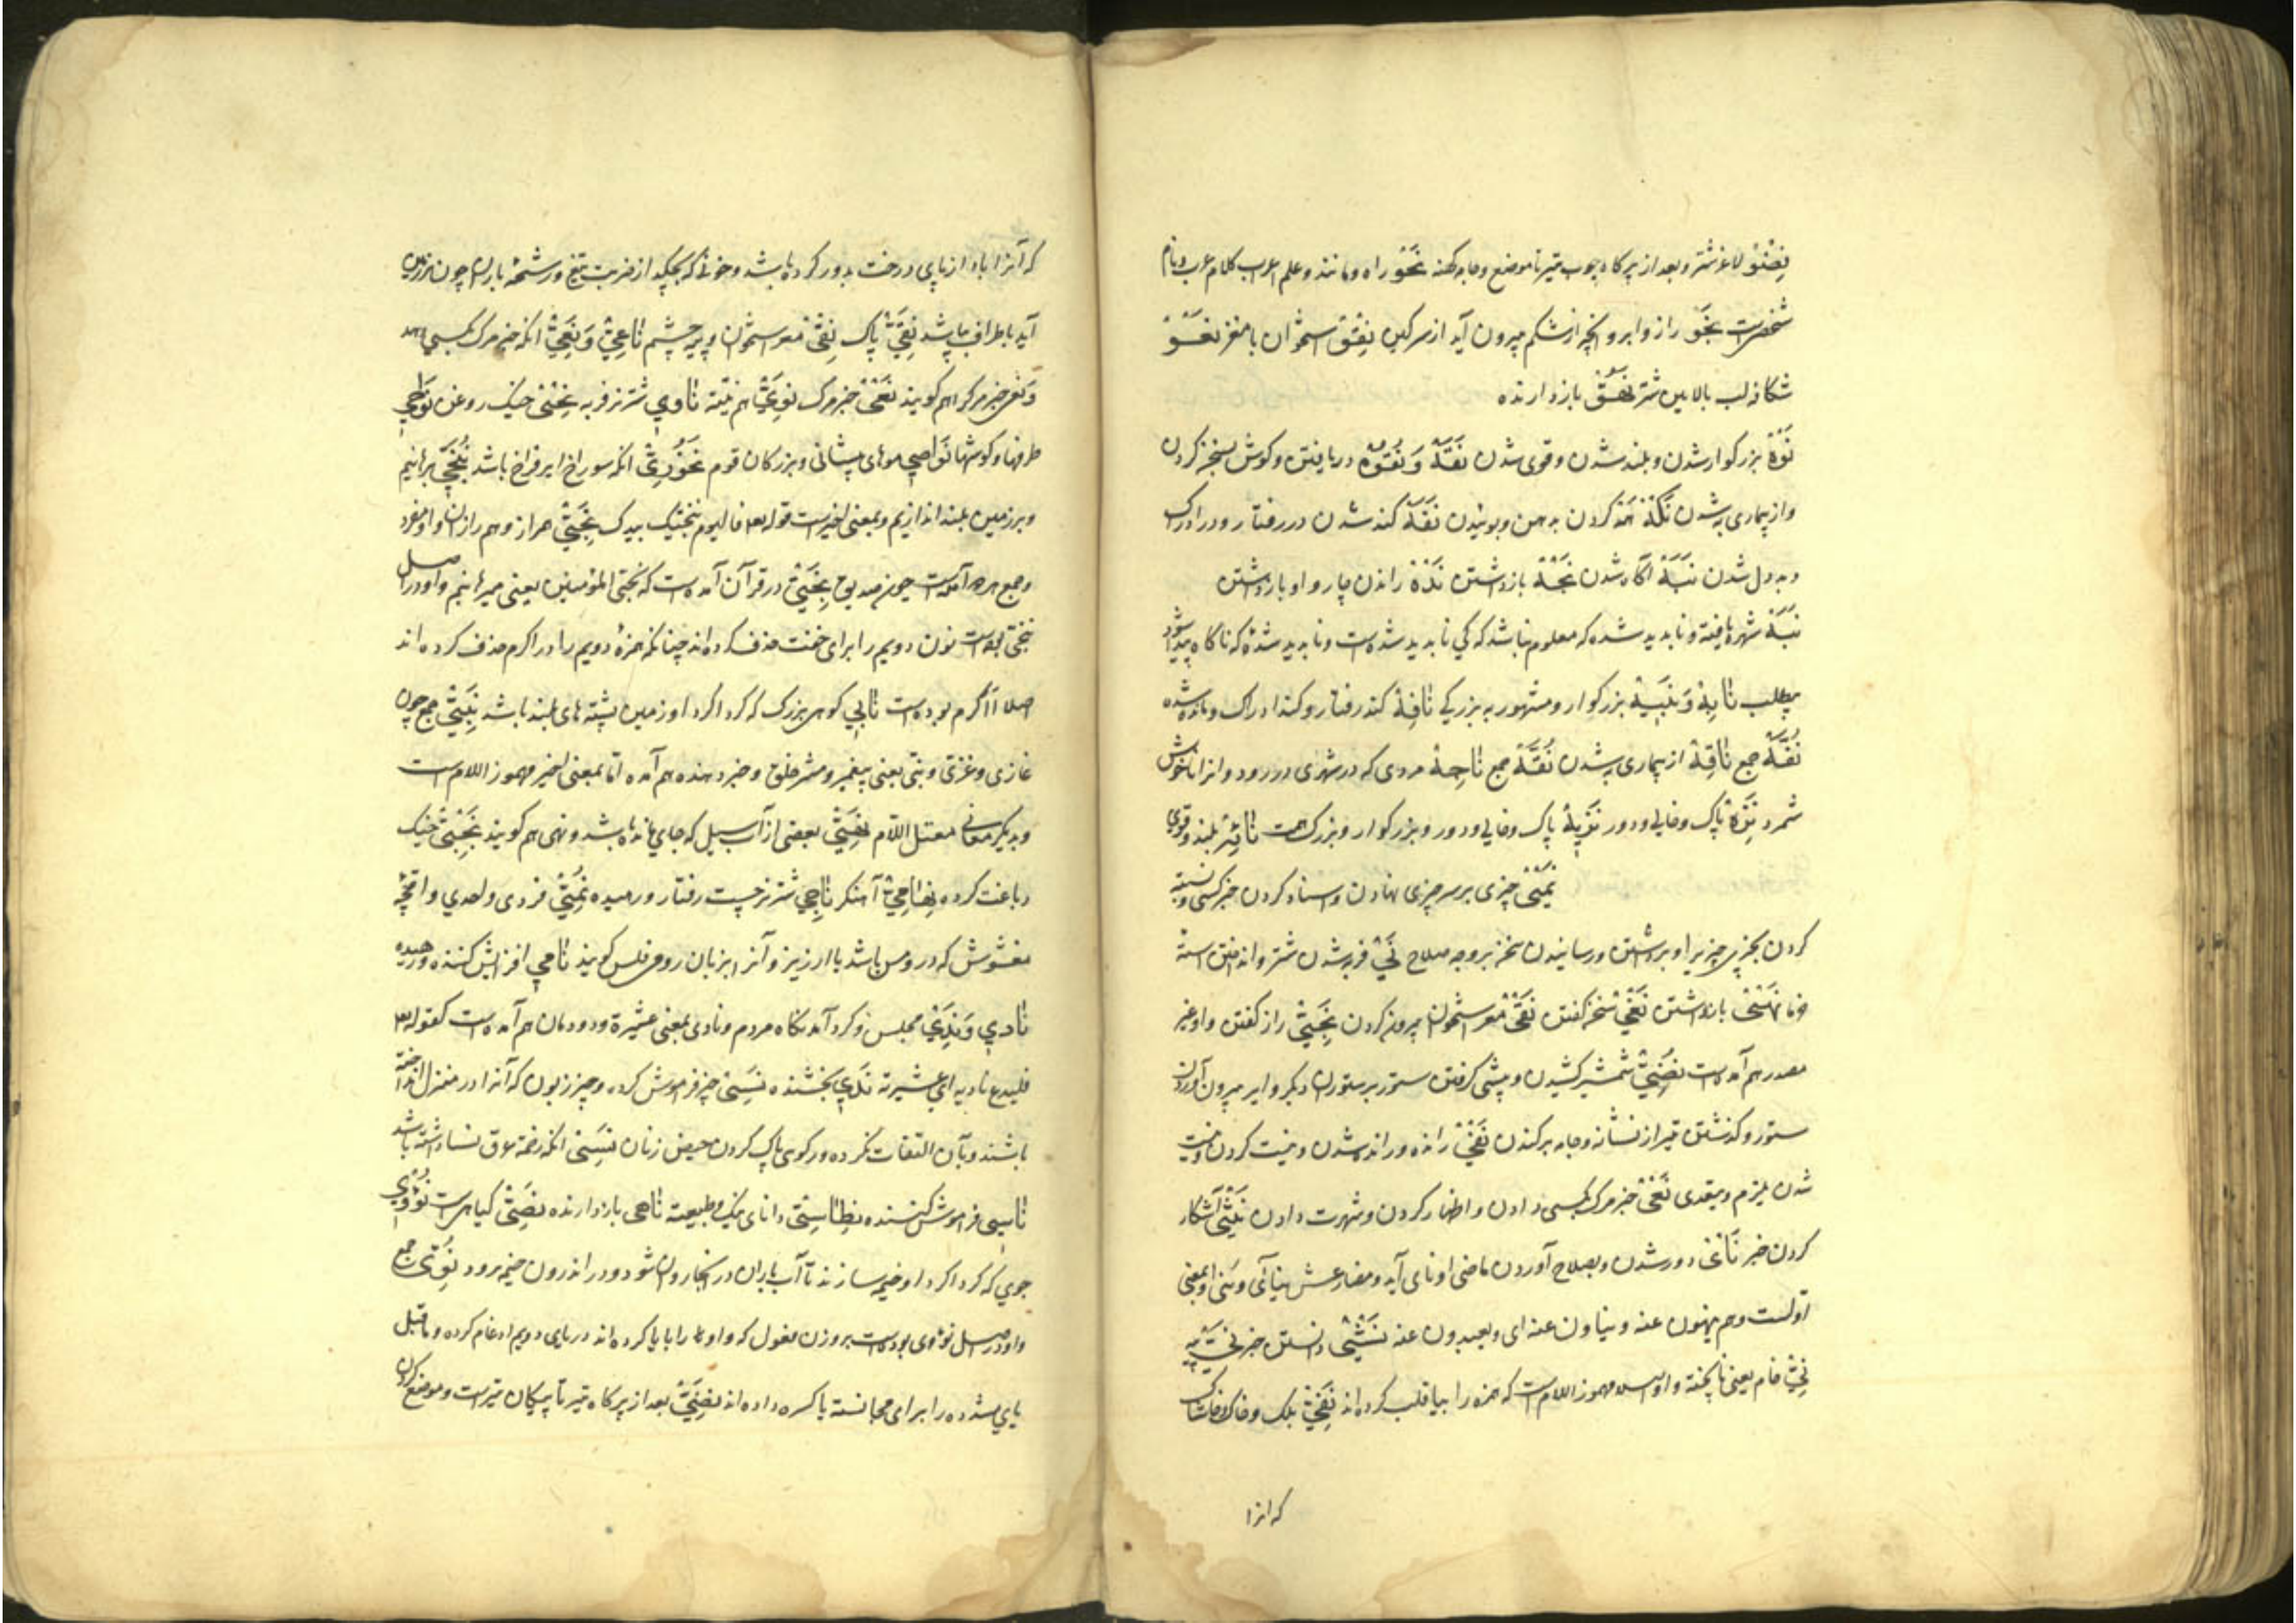 نِضْوٌ لاغر شتر و بعد از پر کاه چوب تیر تا موضع و جامه کهنه نَحْوٌ راه و مانند و علم اعراب کلام عرب و نام
شخصیست نَجْوٌ راز و ابر و آنچه از شکم بیرون آید از سرکین نِقْوٌ استخوان با مغز نَعْوٌ
شکاف لب بالایین شتر نَهُوٌّ بازدارنده
نَوْهٌ بزرکوار شدن و بلند شدن و قوی شدن نَقَهٌ وَ نُقُوهٌ دریافتن و کوش بسخن کردن
و از بیماری به شدن نَکْهٌ کردن به دهن و بوئیدن نَفَهٌ کند شدن در رفتار و در ادراک
و بد دل شدن نَبَهٌ آکاه شدن نَجْهٌ بازداشتن نَدْهٌ راندن چاروا و بازداشتن
نَبَهٌ شهره یافته و نابدید شده که معلوم نباشد که کی نابدید شدست و نابدید شدهٔ که ناکاه پیدا شود
بیطلب نَابِهٌ وَ نَبِیهٌ بزرکوار و مشهور به بزرکی نَافِهٌ کند رفتار و کند ادراک و مانده شده
نُقَّهٌ جمع نَاقِهٌ از بیماری به شدن نُجَّهٌ جمع نَاجِهٌ مردی که در شهری در رود و انرا ناخوش
شمرد نَزِهٌ پاک و خالی و دور نَزِیهٌ پاک و خالی و دور و بزرکوار و بزرک همت بلند و قوی
نَمْیٌ چیزی بر سر چیزی نهادن و اسناد کردن خبر کسی و نسبة
کردن بچیزی چیزیرا و برداشتن و رسانیدن سخن بر وجه صلاح نَیٌّ فربه شدن شتر و انداختن استه
خرما نَهْیٌ بازداشتن نَغْیٌ سخن کفتن نَقْیٌ مغز استخوان بیرون کردن نَجِیٌّ راز کفتن و او غیر
مصدر هم آمدست نَضْیٌ شمشیر کشیدن و پیشی کرفتن ستور بر ستوران دیکر و ابر بیرون آوردن
ستور و کذشتن تیر از نشانه و جامه برکندن نَفْیٌ راندن و رانده شدن و نیست کردن و نیست
شدن یلزم و یتعدی نَعْیٌ خبر مرک بکسی دادن و اظهار کردن و شهرت دادن نَثْیٌ آشکار
کردن خبر نَأْیٌ دور شدن و بصلاح آوردن ماضی او نای آید و مضارعش ینأی و معنی
اولست و هم ینهون عنه و ینأون عنه ای و یبعدون عنه نَشْیٌ دانستن خبر نَیٌّ پیه
نِیٌّ خام یعنی ناپخته و او اصلا مهموز اللام است که همزه را بیا قلب کرده اند نَفِیٌّ بلک و خاک و خاشاک
که انرا
که آنرا باد از پای درخت بدور کرده باشد و خونی که بچکد از ضربت تیغ و رشحهٔ باران چون بر زمین
آید باطراف بپاشد نَقِیٌّ پاک نِقْیٌ مغز استخوان و پیه چشم نَاعِیٌ وَ نَعِیٌّ انکه خبر مرک بکسی دهد
وَ نفس خبر مرک را هم کویند نَعْیٌ خبر مرک هم نیة نَاوِی شتر نر فربه نِحْیٌ خیک روغن نَوَاحِی
طرفها و کوشها نَوَاصِی موهای پیشانی و بزرکان قوم انکه سوراخ ایر فراخ باشد نُنَجِّی برهانیم
و بر زمین بلند اندازیم و بمعنی اخیر است قوله تعا فالیوم ننجیک ببدنک نَجِیٌّ همراز و هم رازان و او مفرد
و جمع هر دو آمدست چون صدیق نُجِّیَ در قرآن آمدست که نُجّی المؤمنین یعنی میرهانیم و او در اصل
ننجی بودست نون دویم را برای خفت حذف کرده اند چنانکه همزهٔ دویم را در اکرم حذف کرده اند
اصلا أأکرم بودست نَابِی کوهی بزرک که کرداکرد او زمین پشته های بلند باشد نَبِیٌّ جمع چون
غازی و غزی و نبی یعنی پیغمبر و مشرف خلق و خبر دهنده هم آمده اما بمعنی اخیر مهموز اللام است
و بدیکر معانی معتل اللام نَفِیٌّ بعضی از آب سیل که جای مانده باشد و نهی هم کویند خیک
دباغت کرده نِهَامِیٌّ آهنکر نَاجِی شتر نر چست رفتار و رمیده نُمِّیٌّ فردی و احدی و اقچهٔ
مغشوش که در و مس باشد یا ارزیز و آنرا بزبان رومی فلس کویند نَامِی افزایش کننده و رهیده
نَادِی وَ نَدِیٌّ مجلس و کرد آمدنکاه مردم و نادی بمعنی عشیرة و دودمان هم آمدست کقوله تعا
فلیدع نادیه ای عشیرته نَدِی بخشنده نَسْیٌ چیز فراموش کرده و چیز زبون که آنرا در منزل انداخته
باشند و بآن التفات نکرده و رکوی پاک کردن حیض زنان نَسِیٌّ انکه زحمة عرق نسا داشته باشد
نَاسِی فراموش کننده نِطَاسِیٌّ دانای نیک و طبیعت نَاهِی بازدارنده نَصِیٌّ کیاهیست نُؤْیٌ
جوی که کرداکرد او خیمه سازند تا آب باران در آنجا روان شود و در اندرون خیمه نرود نُؤِیٌّ جمع
و او در اصل نؤوی بودست بر وزن مفعول که واو را بیا کرده اند در یای دویم ادغام کرده و ماقبل
یای مشدده را برای مجانسة یا کسره داده اند نَضِیٌّ بعد از پر کاه تیر تا پیکان تیرست و موضع کردن